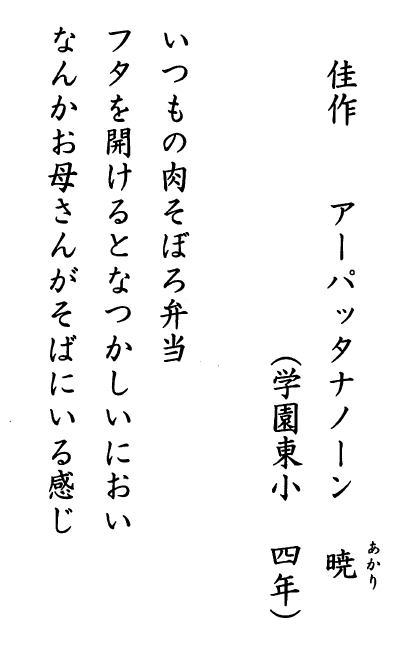 佳作　アーパッタナノーン　暁
あかり
（学園東小　四年）
いつもの肉そぼろ弁当
フタを開けるとなつかしいにおい
なんかお母さんがそばにいる感じ